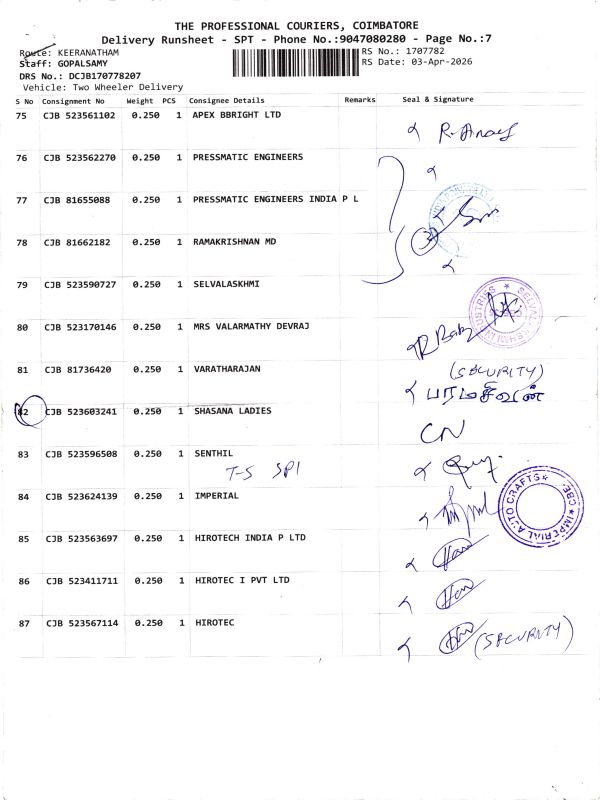 THE PROFESSIONAL COURIERS, COIMBATORE
Delivery Runsheet - SPT - Phone No.:9047080280 - Page No.:7
Route: KEERANATHAM
RS No.: 1707782
Staff: GOPALSAMY
RS Date: 03-Apr-2026
DRS No.: DCJB170778207
Vehicle: Two Wheeler Delivery
S No Consignment No Weight PCS Consignee Details Remarks Seal & Signature
75 CJB 523561102 0.250 1 APEX BBRIGHT LTD
76 CJB 523562270 0.250 1 PRESSMATIC ENGINEERS
77 CJB 81655088 0.250 1 PRESSMATIC ENGINEERS INDIA P L
78 CJB 81662182 0.250 1 RAMAKRISHNAN MD
79 CJB 523590727 0.250 1 SELVALASKHMI
80 CJB 523170146 0.250 1 MRS VALARMATHY DEVRAJ
(SECURITY)
81 CJB 81736420 0.250 1 VARATHARAJAN
பரமசிவன்
82 CJB 523603241 0.250 1 SHASANA LADIES
CN
83 CJB 523596508 0.250 1 SENTHIL
T-S SPI
84 CJB 523624139 0.250 1 IMPERIAL
IMPERIAL AUTO CRAFTS CBE
85 CJB 523563697 0.250 1 HIROTECH INDIA P LTD
86 CJB 523411711 0.250 1 HIROTEC I PVT LTD
87 CJB 523567114 0.250 1 HIROTEC
(SECURITY)